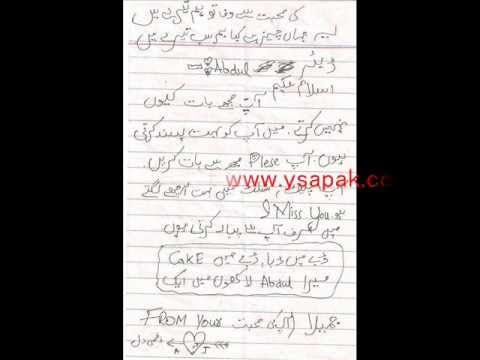 کی محبت سے وفا تو ہم تیرے ہیں
جہاں چیز ہے کیا ہم سب تیرے ہیں
ڈیئر Abdul
اسلام علیکم
آپ مجھ سے بات کیوں
نہیں کرتے۔ میں آپ کو بہت پسند کرتی
ہوں۔ آپ Plese مجھ سے بات کریں
www.ysapak.co
آپ بہت اچھے لگتے
ہو I Miss You
میں صرف آپ سے پیار کرتی ہوں
ڈبے میں ڈبا، ڈبے میں CakE
میرا Abdul لاکھوں میں ایک
جمیلا آپکی محبت FROM Your
زخمی دل A J